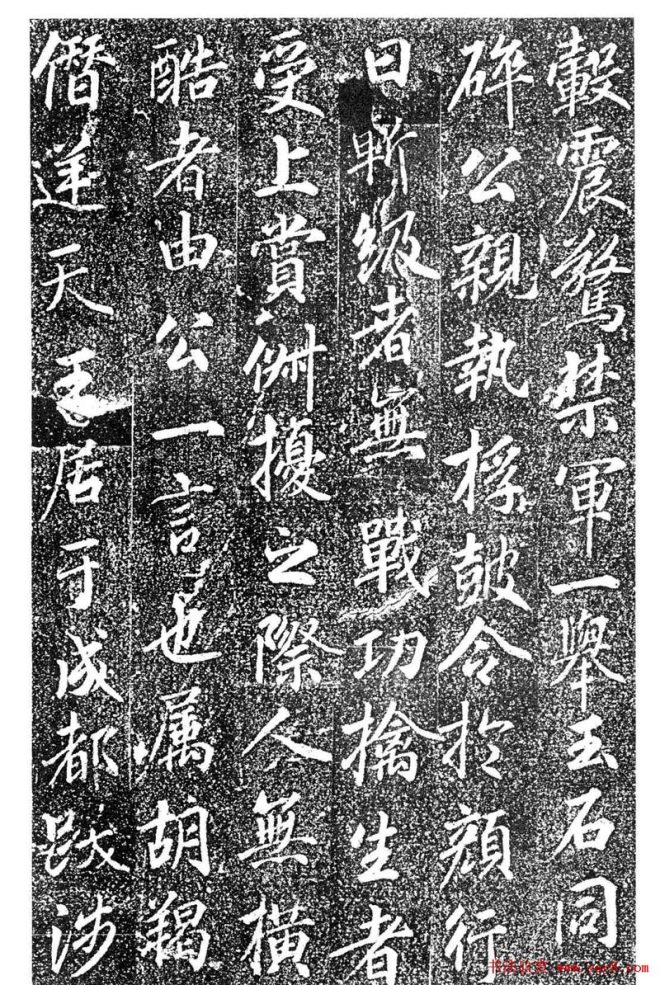 轂震驚禁軍一舉玉石同
碎公親執桴皷令於顔行
曰斬級者無戰功擒生者
受上賞俶擾之際人無橫
酷者由公一言也属胡羯
僭逆天王居于成都跋涉